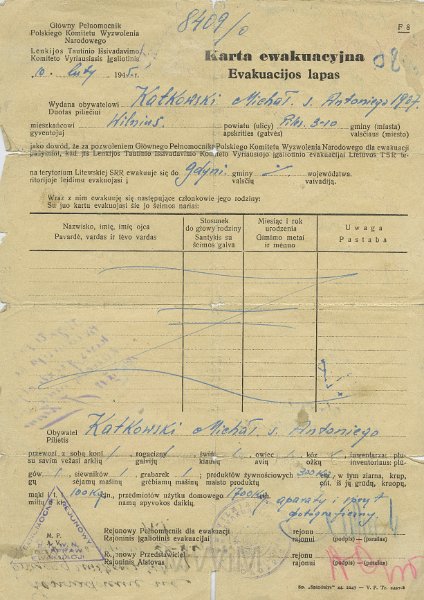 8409/0
F 8
Główny Pełnomocnik
Polskiego Komitetu Wyzwolenia
Narodowego
Lenkijos Tautinio Išsivadavimo
Komiteto Vyriausiasis Įgaliotinis
10. luty 1945 r.
Karta ewakuacyjna
Evakuacijos lapas
Wydana obywatelowi Katkowski Michał s. Antoniego 1907.
Duotas piliečiui
mieszkańcowi Wilnius. powiatu (ulicy) gminy (miasta)
gyventojui apskrities (gatvės) valsčiaus (miesto)
jako dowód, że za pozwoleniem Głównego Pełnomocnika Polskiego Komitetu Wyzwolenia Narodowego dla ewakuacji
pažymint, kad jis Lenkijos Tautinio Išsivadavimo Komiteto Vyriausiojo Įgaliotinio evakuacijai Lietuvos TSR te-
na terytorium Litewskiej SRR ewakuuje się do Gdyni gminy województwa.
ritorijoje leidimu evakuojasi į valsčių vaivadiją.
Wraz z nim ewakuują się następujące członkowie jego rodziny:
Su juo kartu evakuojasi šie jo šeimos nariai:
Nazwisko, imię, imię ojca
Pavardė, vardas ir tėvo vardas
Stosunek do głowy rodziny
Santykis su šeimos galva
Miesiąc i rok urodzenia
Gimimo metai ir mėnuo
Uwaga
Pastaba
Obywatel Katkowski Michał s. Antoniego
Pilietis
przewozi z sobą koni rogacizny świń owiec kóz inwentarza: płu-
su savim vežasi arklių galvijų kiaulių avių ožkų inventoriaus: plū-
gów siewników grabarek produktów żywnościowych 300 kg, w tym ziarna, krup,
gų sėjamų mašinų grėbiamų mašinų maisto produktų iš jų grūdų, kruopų,
mąki 100 kg przedmiotów użytku domowego 700 kg. aparaty i sprzęt
miltų namų apyvokos daiktų fotograficzny
M. P.
A. V.
Rejonowy Pełnomocnik dla ewakuacji
Rajoninis Įgaliotinis evakuacijai
Rejonowy Przedstawiciel
Rajoninis Atstovas
rejonu (podpis)
rajono (parašas)
rejonu (podpis)
rajono (parašas)